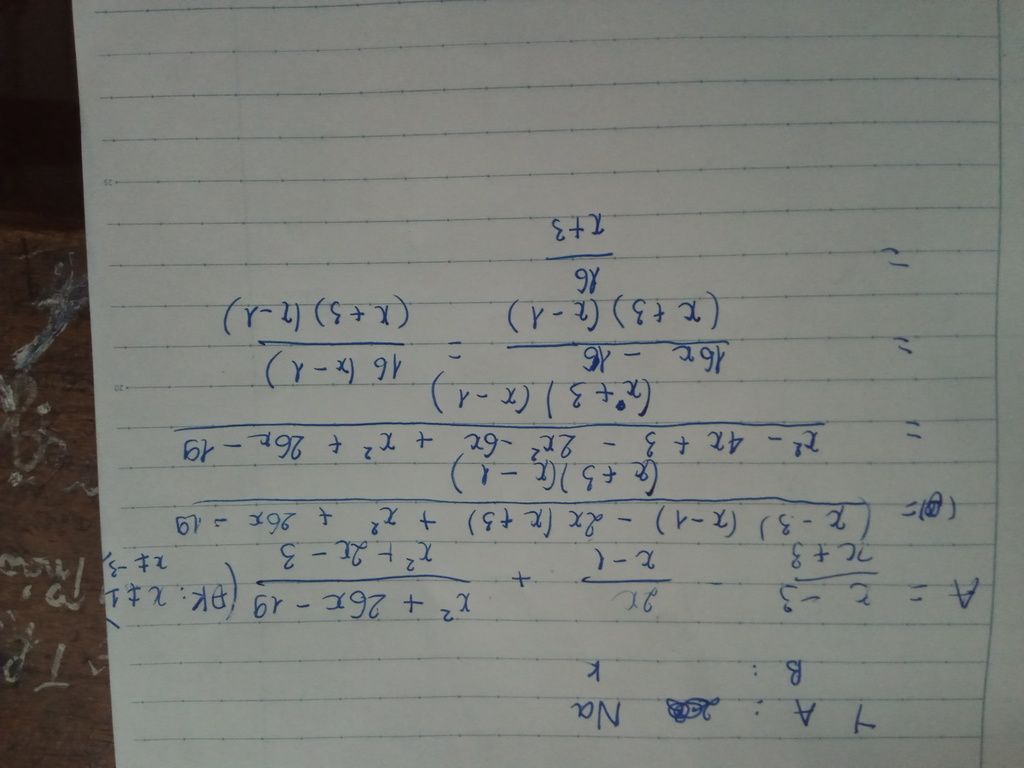 1 A : Na
B : K
A = \frac{x-3}{x+3} - \frac{2x}{x-1} + \frac{x^2+26x-19}{x^2+2x-3} (ĐK: x ≠ 1, x ≠ -3)
= \frac{(x-3)(x-1) - 2x(x+3) + x^2 + 26x - 19}{(x+3)(x-1)}
= \frac{x^2 - 4x + 3 - 2x^2 - 6x + x^2 + 26x - 19}{(x+3)(x-1)}
= \frac{16x - 16}{(x+3)(x-1)} = \frac{16(x-1)}{(x+3)(x-1)}
= \frac{16}{x+3}